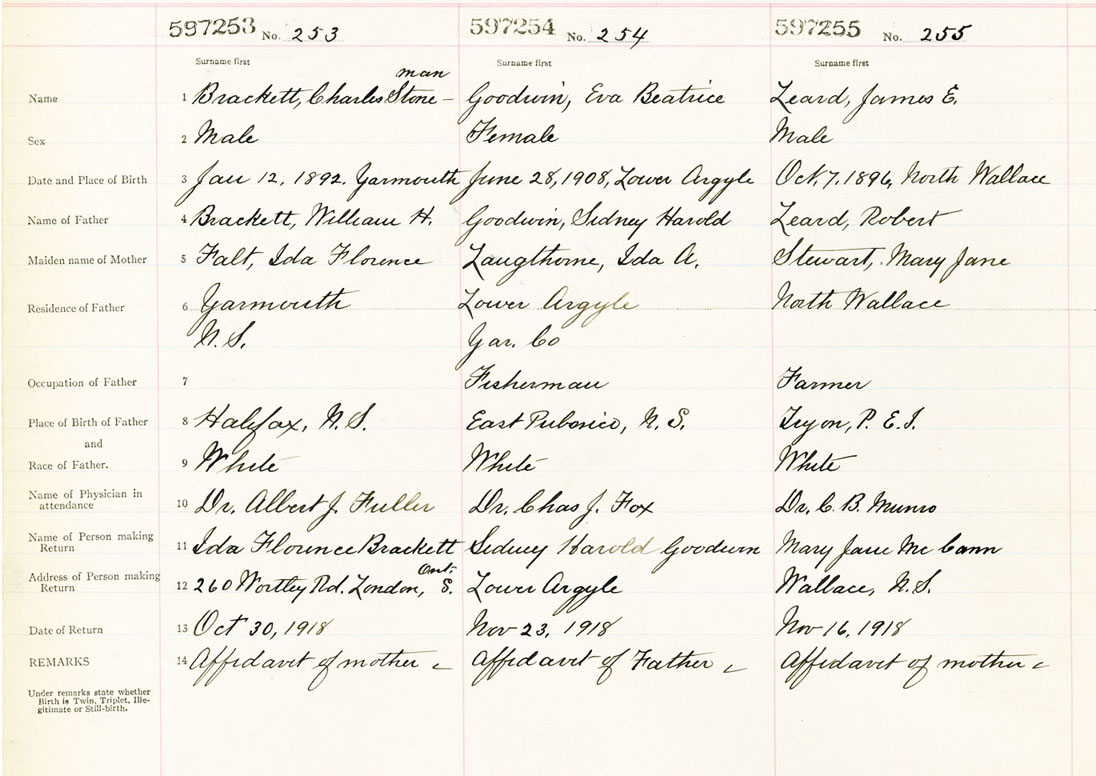 597253 No. 253 597254 No. 254 597255 No. 255
Surname first Surname first Surname first
man
Name 1 Brackett, Charles Stone- Goodwin, Eva Beatrice Leard, James E.
Sex 2 Male Female Male
Date and Place of Birth 3 Jan 12, 1892. Yarmouth June 28, 1908, Lower Argyle Oct, 7, 1896, North Wallace
Name of Father 4 Brackett, William H. Goodwin, Sidney Harold Leard, Robert
Maiden name of Mother 5 Falt, Ida Florence Langthorne, Ida A. Stewart, Mary Jane
Residence of Father 6 Yarmouth Lower Argyle North Wallace
N.S. Yar. Co
Occupation of Father 7 Fisherman Farmer
Place of Birth of Father 8 Halifax, N.S. East Pubnico, N.S. Tryon, P.E.I.
and
Race of Father. 9 White White White
Name of Physician in
attendance 10 Dr. Albert J. Fuller Dr. Chas J. Fox Dr. C. B. Munro
Name of Person making
Return 11 Ida Florence Brackett Sidney Harold Goodwin Mary Jane McCann
Ont.
Address of Person making
Return 12 260 Wortley Rd. London, S. Lower Argyle Wallace, N.S.
Date of Return 13 Oct 30, 1918 Nov 23, 1918 Nov 16, 1918
REMARKS 14 Affidavit of mother Affidavit of Father Affidavit of mother
Under remarks state whether
Birth is Twin, Triplet, Ille-
gitimate or Still-birth.